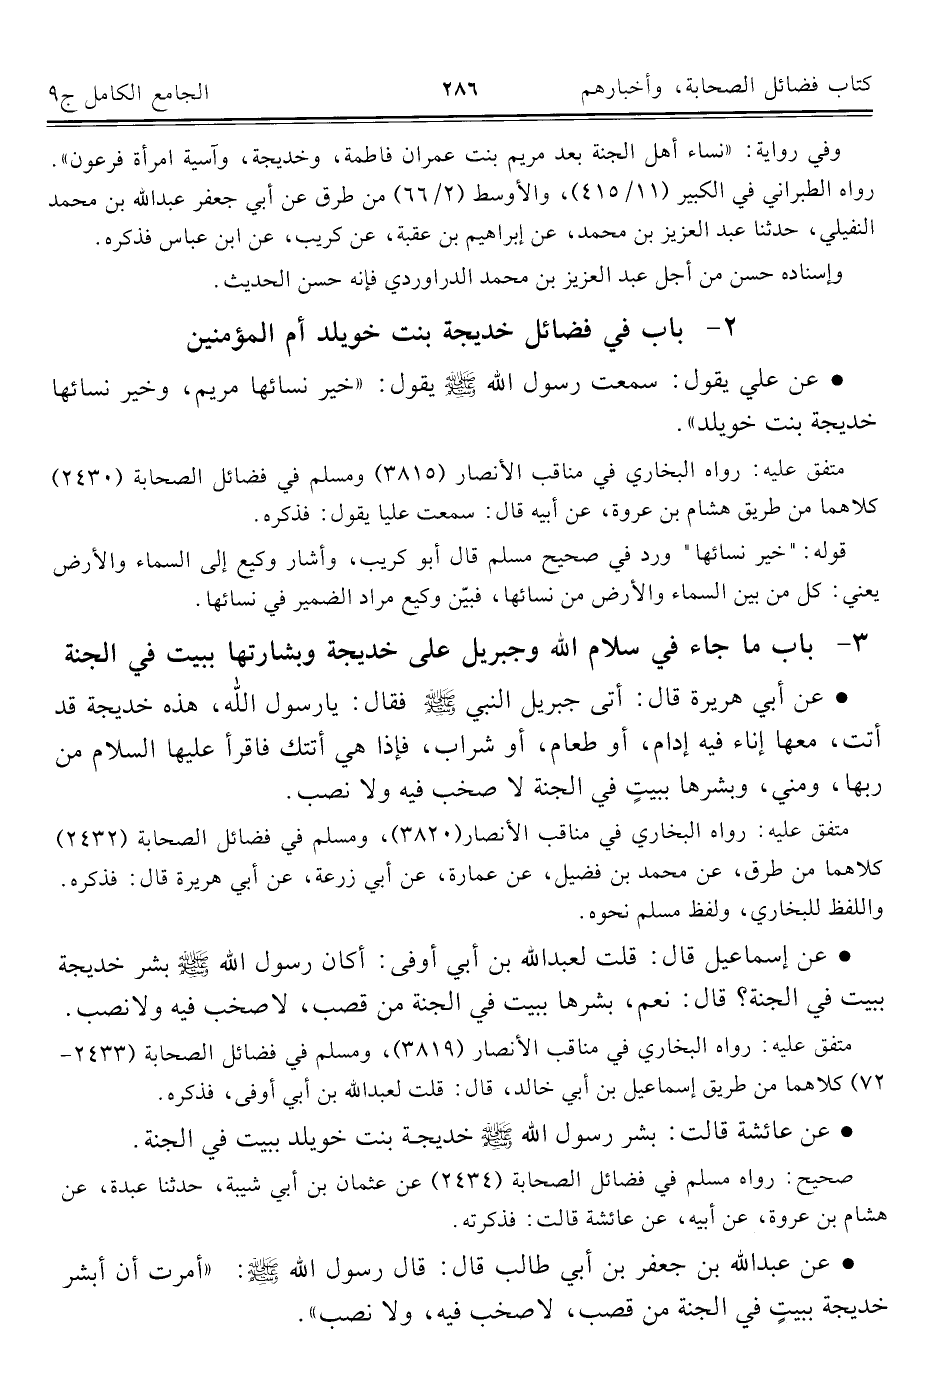 كتاب فضائل الصحابة، وأخبارهم ٢٨٦ الجامع الكامل ج٩
وفي رواية: «نساء أهل الجنة بعد مريم بنت عمران فاطمة، وخديجة، وآسية امرأة فرعون».
رواه الطبراني في الكبير (١١/ ٤١٥)، والأوسط (٢/ ٦٦) من طرق عن أبي جعفر عبدالله بن محمد
النفيلي، حدثنا عبد العزيز بن محمد، عن إبراهيم بن عقبة، عن كريب، عن ابن عباس فذكره.
وإسناده حسن من أجل عبد العزيز بن محمد الدراوردي فإنه حسن الحديث.
٢- باب في فضائل خديجة بنت خويلد أم المؤمنين
• عن علي يقول: سمعت رسول الله ﷺ يقول: «خير نسائها مريم، وخير نسائها
خديجة بنت خويلد».
متفق عليه: رواه البخاري في مناقب الأنصار (٣٨١٥) ومسلم في فضائل الصحابة (٢٤٣٠)
كلاهما من طريق هشام بن عروة، عن أبيه قال: سمعت عليا يقول: فذكره.
قوله: "خير نسائها" ورد في صحيح مسلم قال أبو كريب، وأشار وكيع إلى السماء والأرض
يعني: كل من بين السماء والأرض من نسائها، فبيّن وكيع مراد الضمير في نسائها.
٣- باب ما جاء في سلام الله وجبريل على خديجة وبشارتها ببيت في الجنة
• عن أبي هريرة قال: أتى جبريل النبي ﷺ فقال: يارسول الله، هذه خديجة قد
أتت، معها إناء فيه إدام، أو طعام، أو شراب، فإذا هي أتتك فاقرأ عليها السلام من
ربها، ومني، وبشرها ببيتٍ في الجنة لا صخب فيه ولا نصب.
متفق عليه: رواه البخاري في مناقب الأنصار(٣٨٢٠)، ومسلم في فضائل الصحابة (٢٤٣٢)
كلاهما من طرق، عن محمد بن فضيل، عن عمارة، عن أبي زرعة، عن أبي هريرة قال: فذكره.
واللفظ للبخاري، ولفظ مسلم نحوه.
• عن إسماعيل قال: قلت لعبدالله بن أبي أوفى: أكان رسول الله ﷺ بشر خديجة
ببيت في الجنة؟ قال: نعم، بشرها ببيت في الجنة من قصب، لاصخب فيه ولانصب.
متفق عليه: رواه البخاري في مناقب الأنصار (٣٨١٩)، ومسلم في فضائل الصحابة (٢٤٣٣-
٧٢) كلاهما من طريق إسماعيل بن أبي خالد، قال: قلت لعبدالله بن أبي أوفى، فذكره.
• عن عائشة قالت: بشر رسول الله ﷺ خديجة بنت خويلد ببيت في الجنة.
صحيح: رواه مسلم في فضائل الصحابة (٢٤٣٤) عن عثمان بن أبي شيبة، حدثنا عبدة، عن
هشام بن عروة، عن أبيه، عن عائشة قالت: فذكرته.
• عن عبدالله بن جعفر بن أبي طالب قال: قال رسول الله ﷺ: «أمرت أن أبشر
خديجة ببيتٍ في الجنة من قصب، لاصخب فيه، ولا نصب».